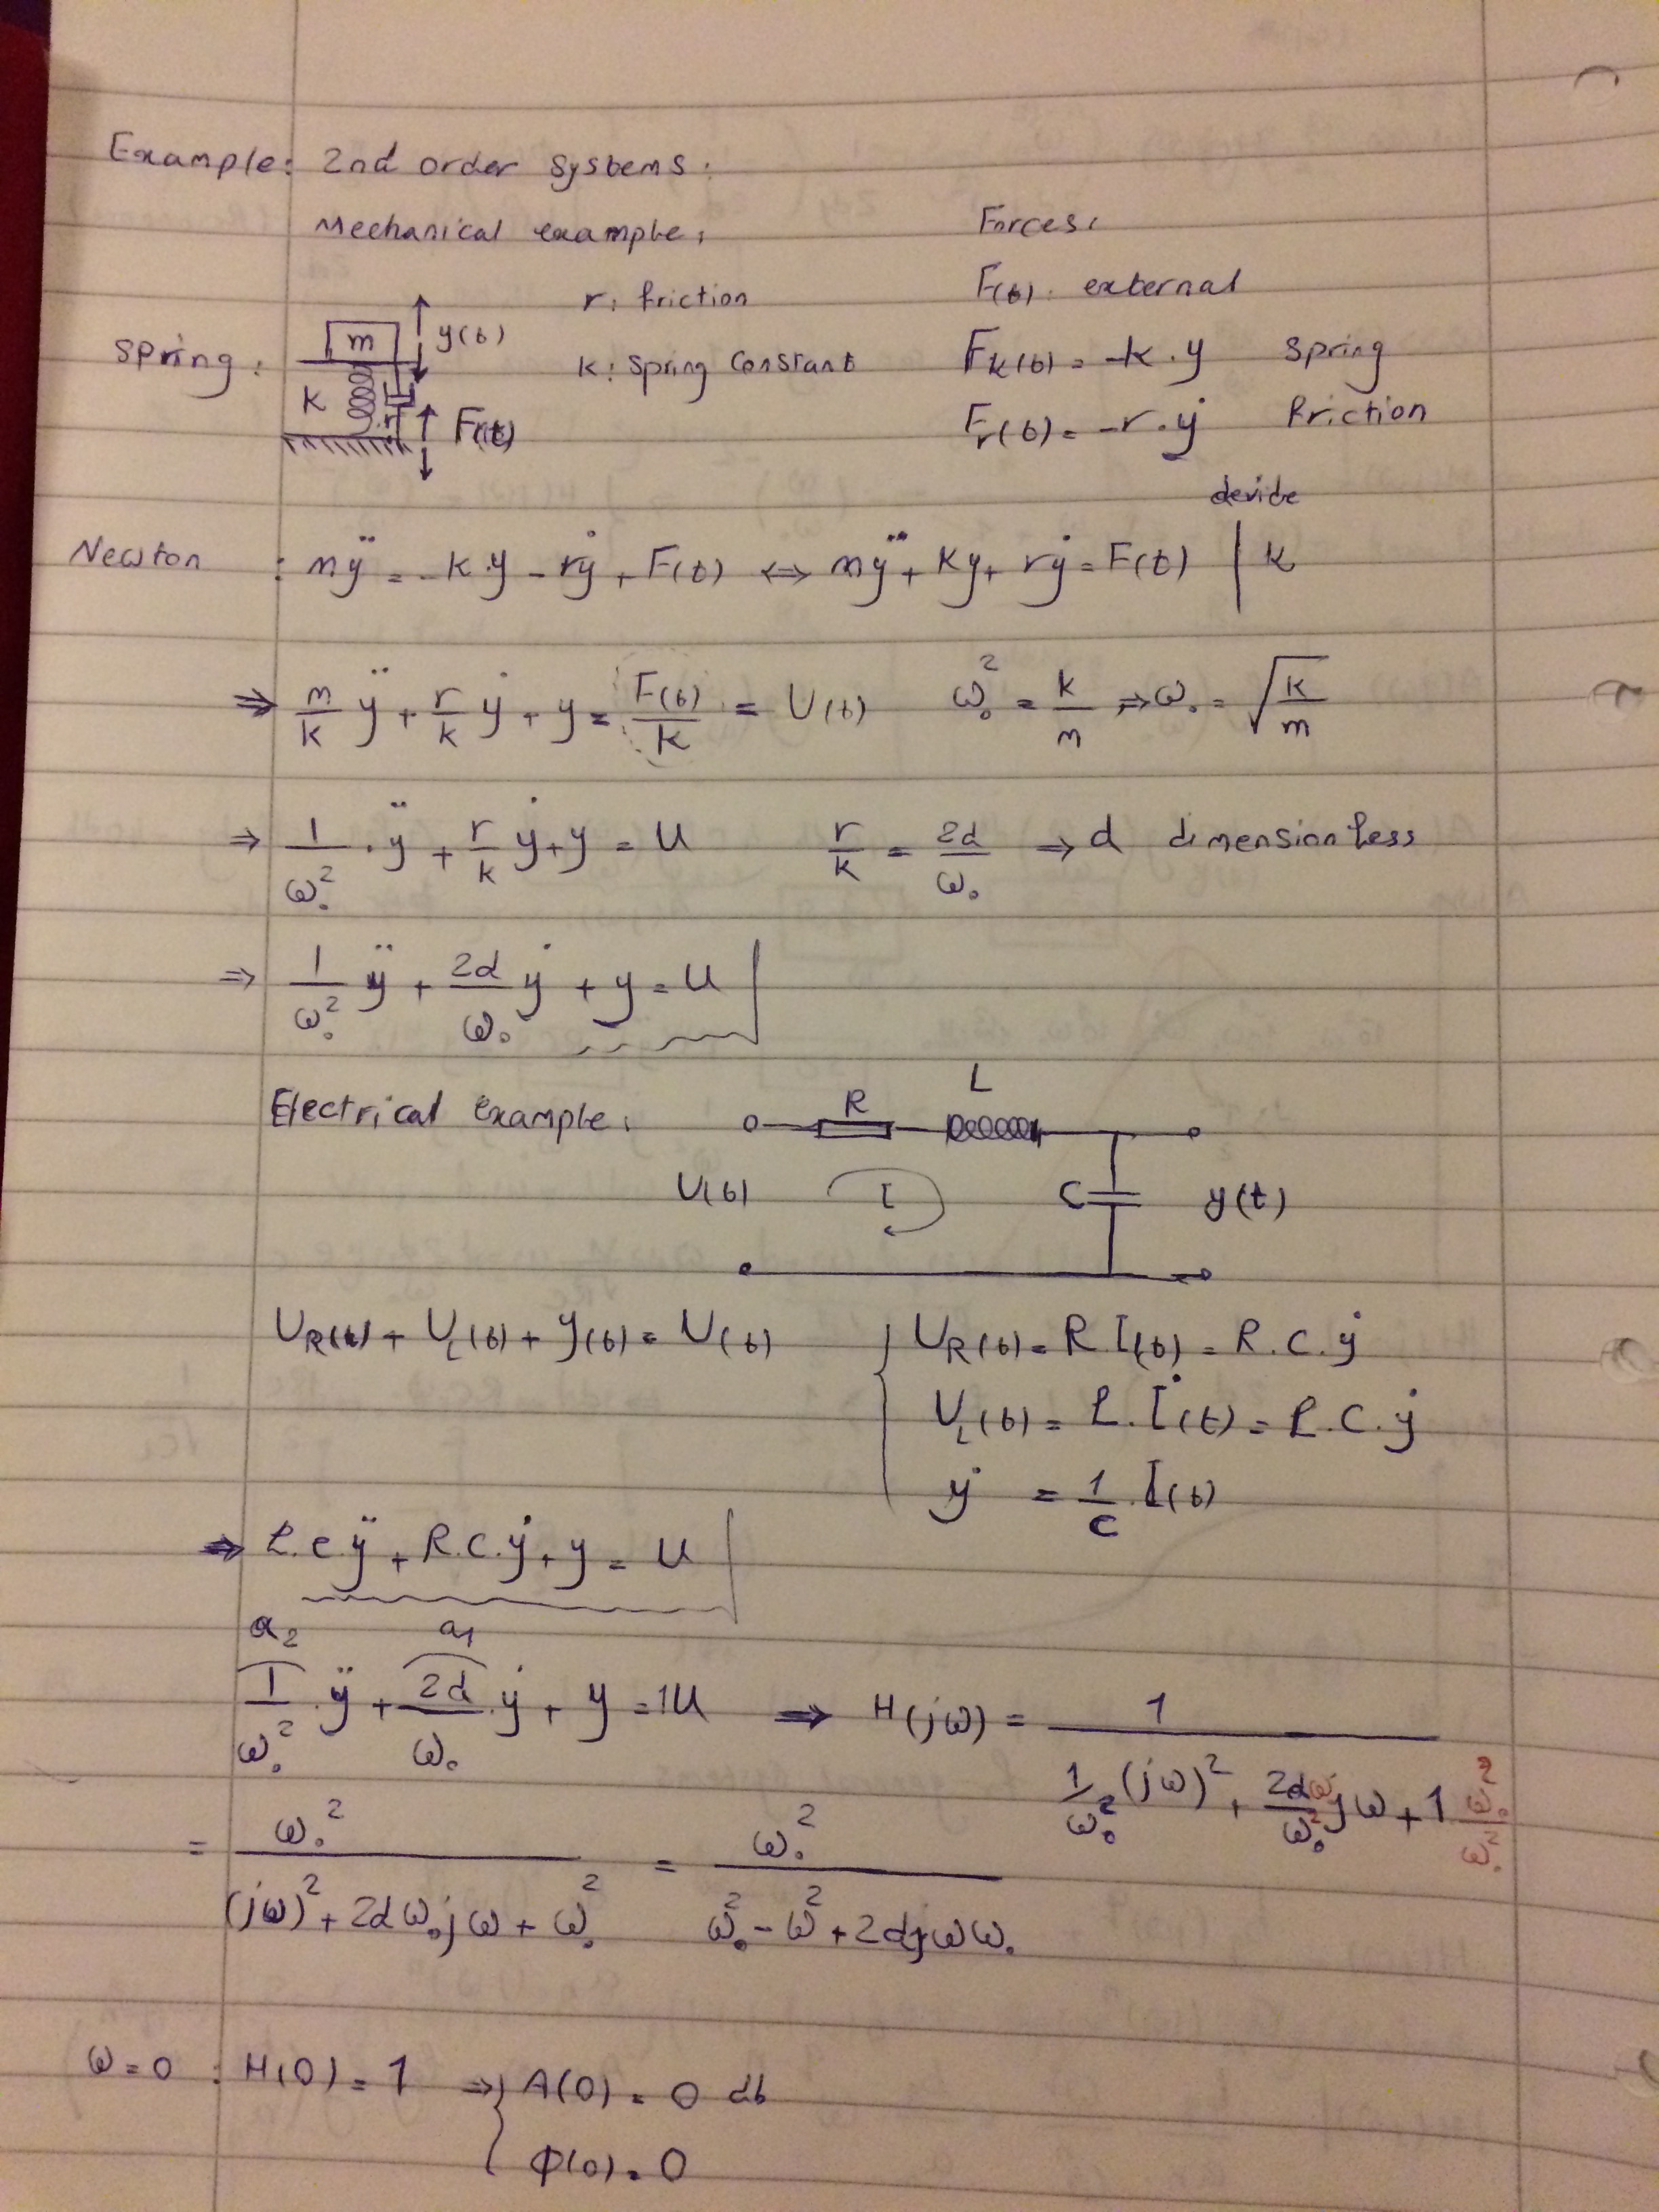 Example: 2nd order systems:
Mechanical example: Forces:
r: friction F(t): external
Spring: m y(t) k: Spring Constant F_k(t) = -k.y Spring
k r F(t) F_r(t) = -r.ẏ friction
devide
Newton : mÿ = -k.y - rẏ + F(t) ⇔ mÿ + ky + rẏ = F(t) | k
⇒ m/k ÿ + r/k ẏ + y = F(t)/k = U(t) ω₀² = k/m ⇒ ω₀ = √(k/m)
⇒ 1/ω₀² . ÿ + r/k ẏ + y = u r/k = 2d/ω₀ ⇒ d dimensionless
⇒ 1/ω₀² ÿ + 2d/ω₀ ẏ + y = u
L
Electrical example: R
U(t) I C y(t)
U_R(t) + U_L(t) + y(t) = U(t) { U_R(t) = R.I(t) = R.C.ẏ
U_L(t) = L.İ(t) = L.C.ẏ
ẏ = 1/C . I(t)
⇒ L.C.ÿ + R.C.ẏ + y = u
a₂ a₁
1/ω₀² . ÿ + 2d/ω₀ . ẏ + y = 1u ⇒ H(jω) = 1 / (1/ω₀² (jω)² + 2dω₀/ω₀² jω + 1 ω₀²/ω₀²)
= ω₀² / ((jω)² + 2dω₀jω + ω₀²) = ω₀² / (ω₀² - ω² + 2djωω₀)
ω = 0 : H(0) = 1 ⇒ { A(0) = 0 db
φ(0) = 0